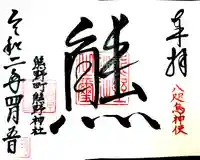 奉拝
八咫烏神使
熊
熊野町熊野神社
令和二年四月